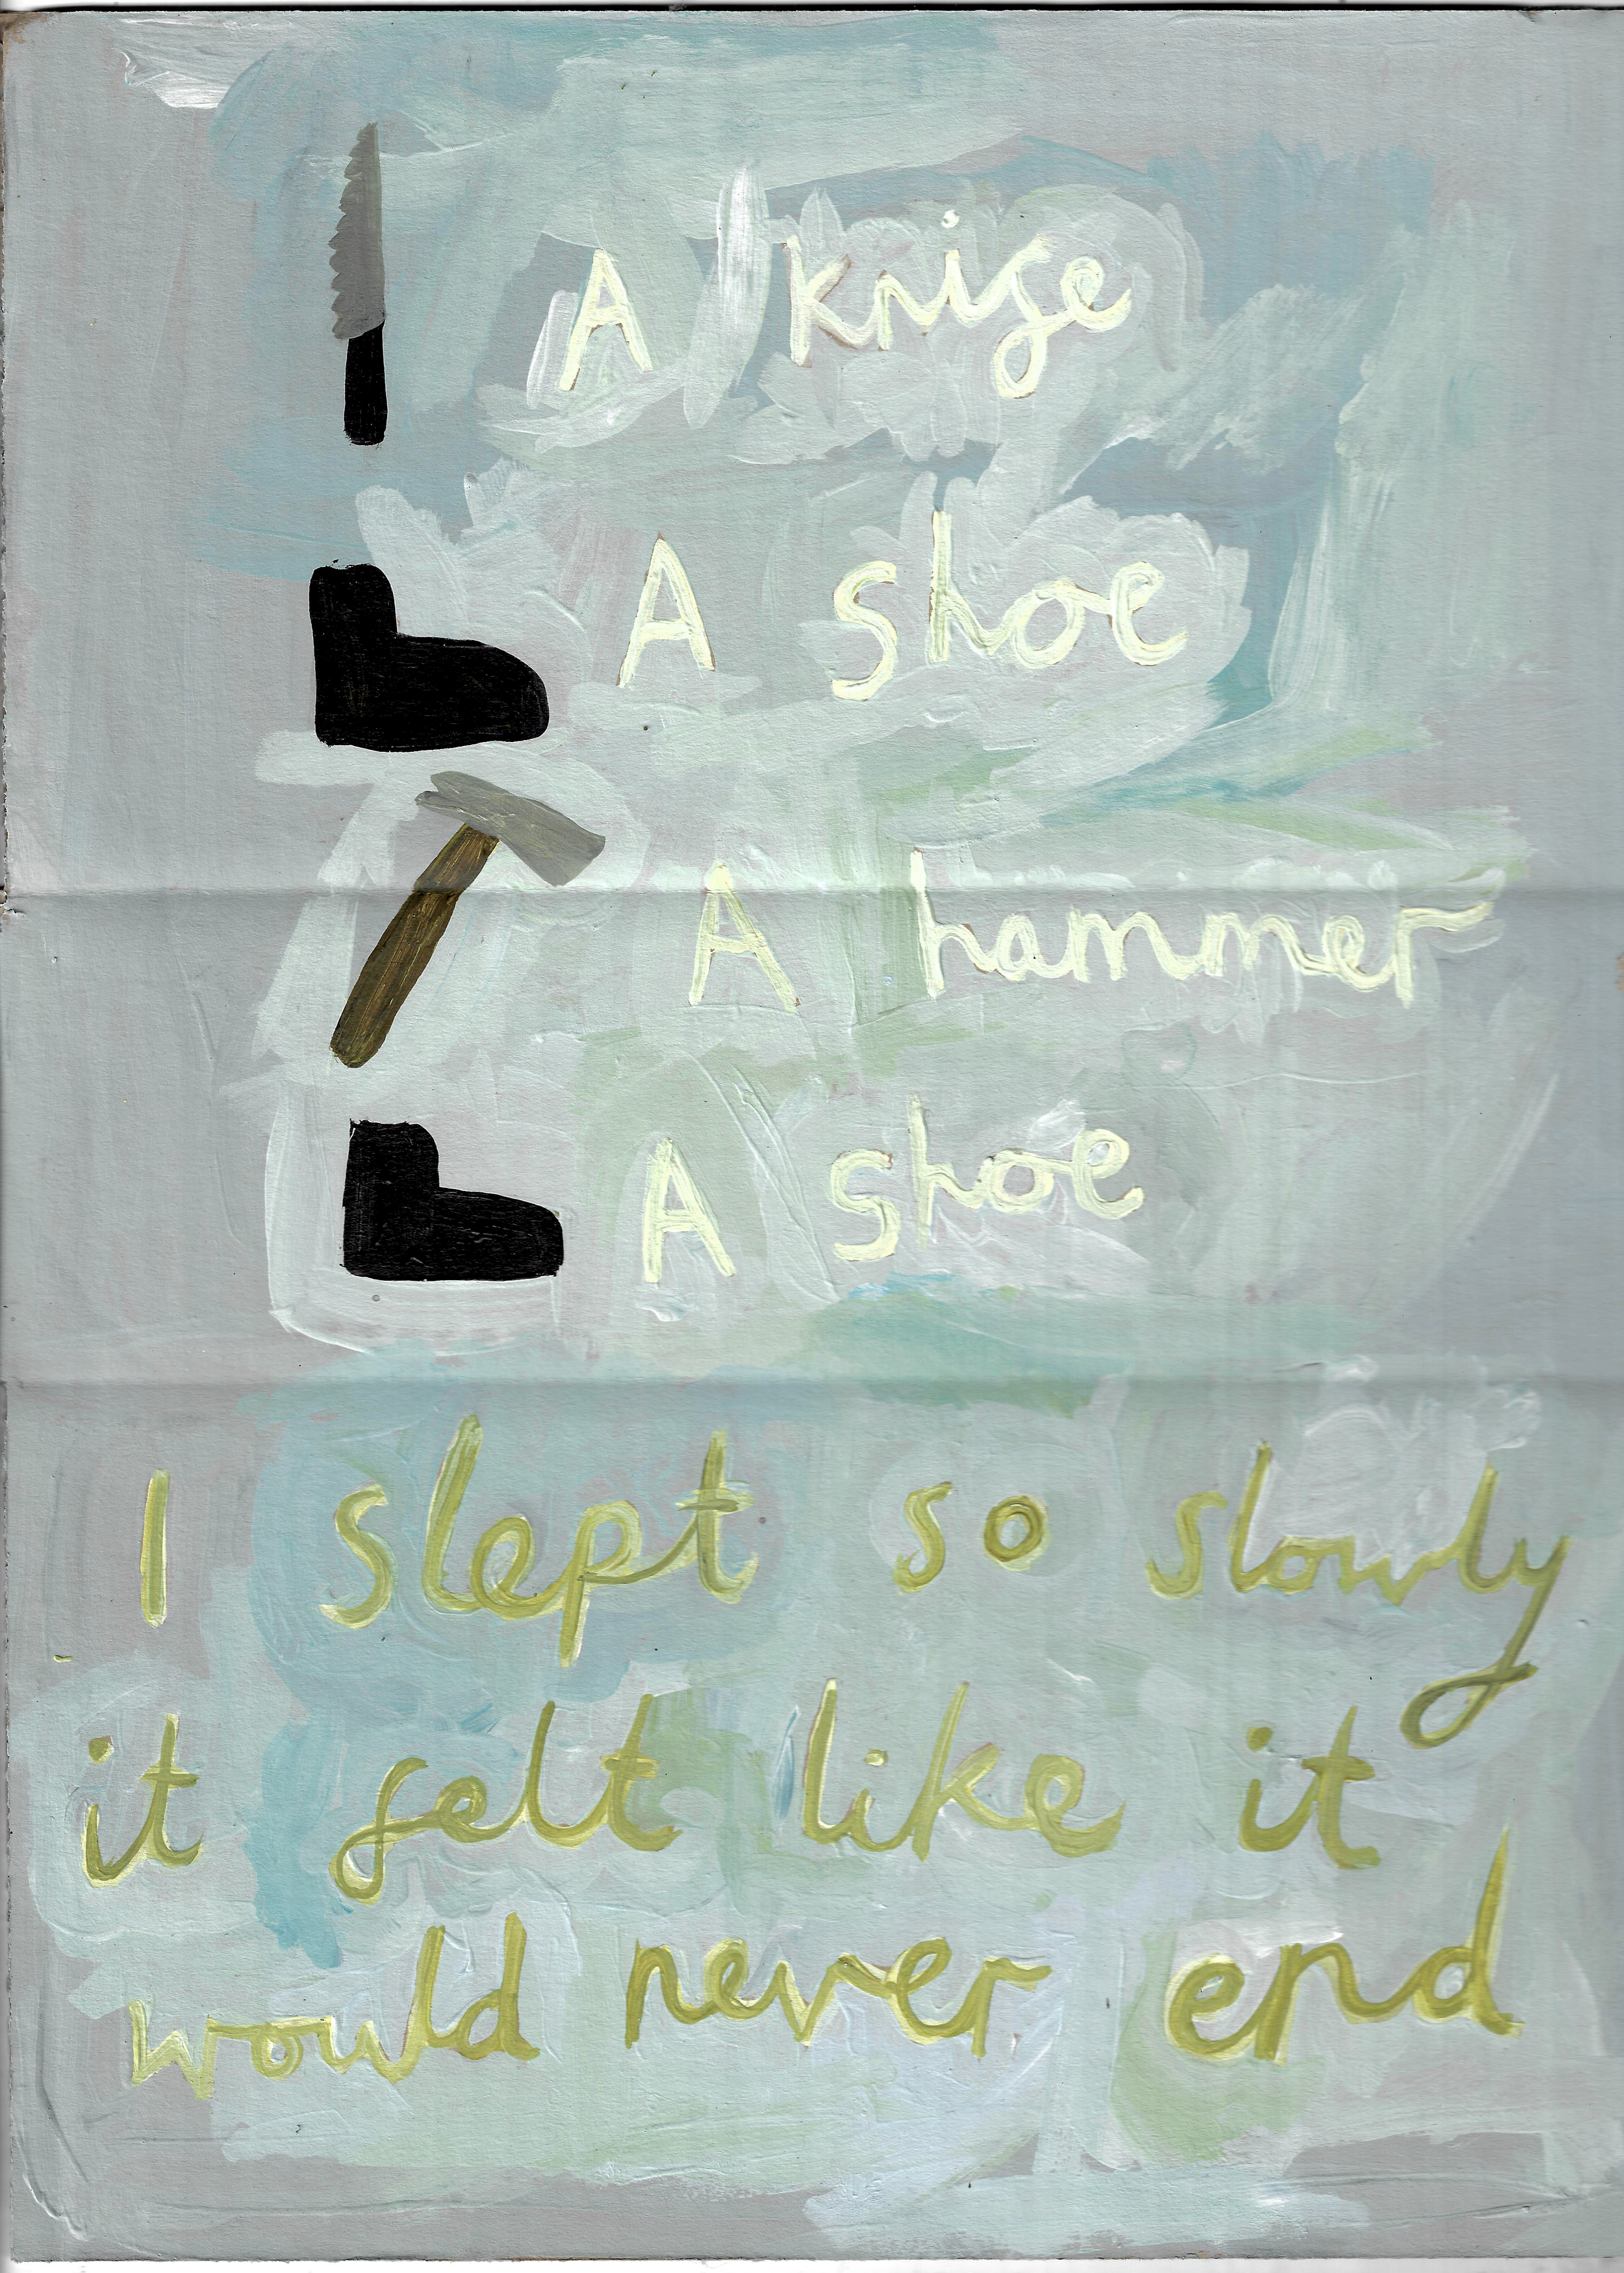 A knife
A shoe
A hammer
A shoe
I slept so slowly
it felt like it
would never end